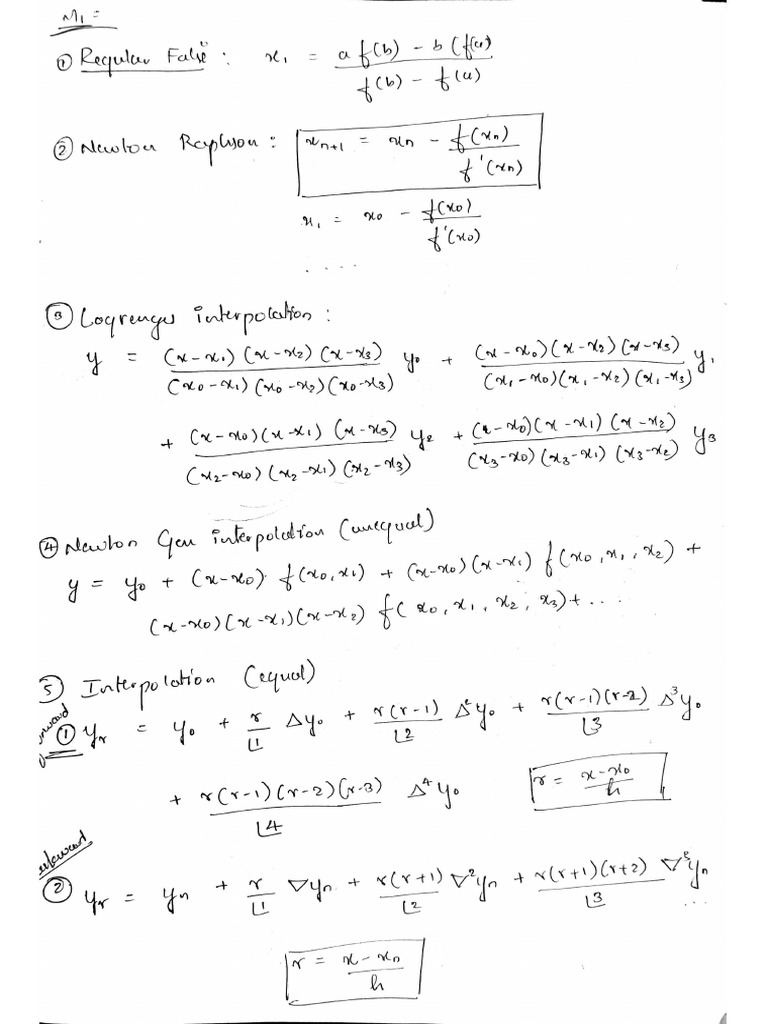 M1 =
① Regular Falsi : x₁ = (a f(b) - b (f(a)) / (f(b) - f(a))
② Newton Raphson : xₙ₊₁ = xₙ - f(xₙ) / f'(xₙ)
x₁ = x₀ - f(x₀) / f'(x₀)
. . . .
③ Lagrenges interpolation :
y = (x-x₁)(x-x₂)(x-x₃) / (x₀-x₁)(x₀-x₂)(x₀-x₃) y₀ + (x-x₀)(x-x₂)(x-x₃) / (x₁-x₀)(x₁-x₂)(x₁-x₃) y₁
+ (x-x₀)(x-x₁)(x-x₃) / (x₂-x₀)(x₂-x₁)(x₂-x₃) y₂ + (x-x₀)(x-x₁)(x-x₂) / (x₃-x₀)(x₃-x₁)(x₃-x₂) y₃
④ Newton Gen interpolation (unequal)
y = y₀ + (x-x₀)· f(x₀,x₁) + (x-x₀)(x-x₁) f(x₀,x₁,x₂) +
(x-x₀)(x-x₁)(x-x₂) f(x₀,x₁,x₂,x₃)+ ...
⑤ Interpolation (equal)
① yᵣ = y₀ + r/⌊1 Δy₀ + r(r-1)/⌊2 Δ²y₀ + r(r-1)(r-2)/⌊3 Δ³y₀
+ r(r-1)(r-2)(r-3)/⌊4 Δ⁴y₀ r = (x-x₀)/h
② yᵣ = yₙ + r/⌊1 ∇yₙ + r(r+1)/⌊2 ∇²yₙ + r(r+1)(r+2)/⌊3 ∇³yₙ ...
r = (x-xₙ)/h